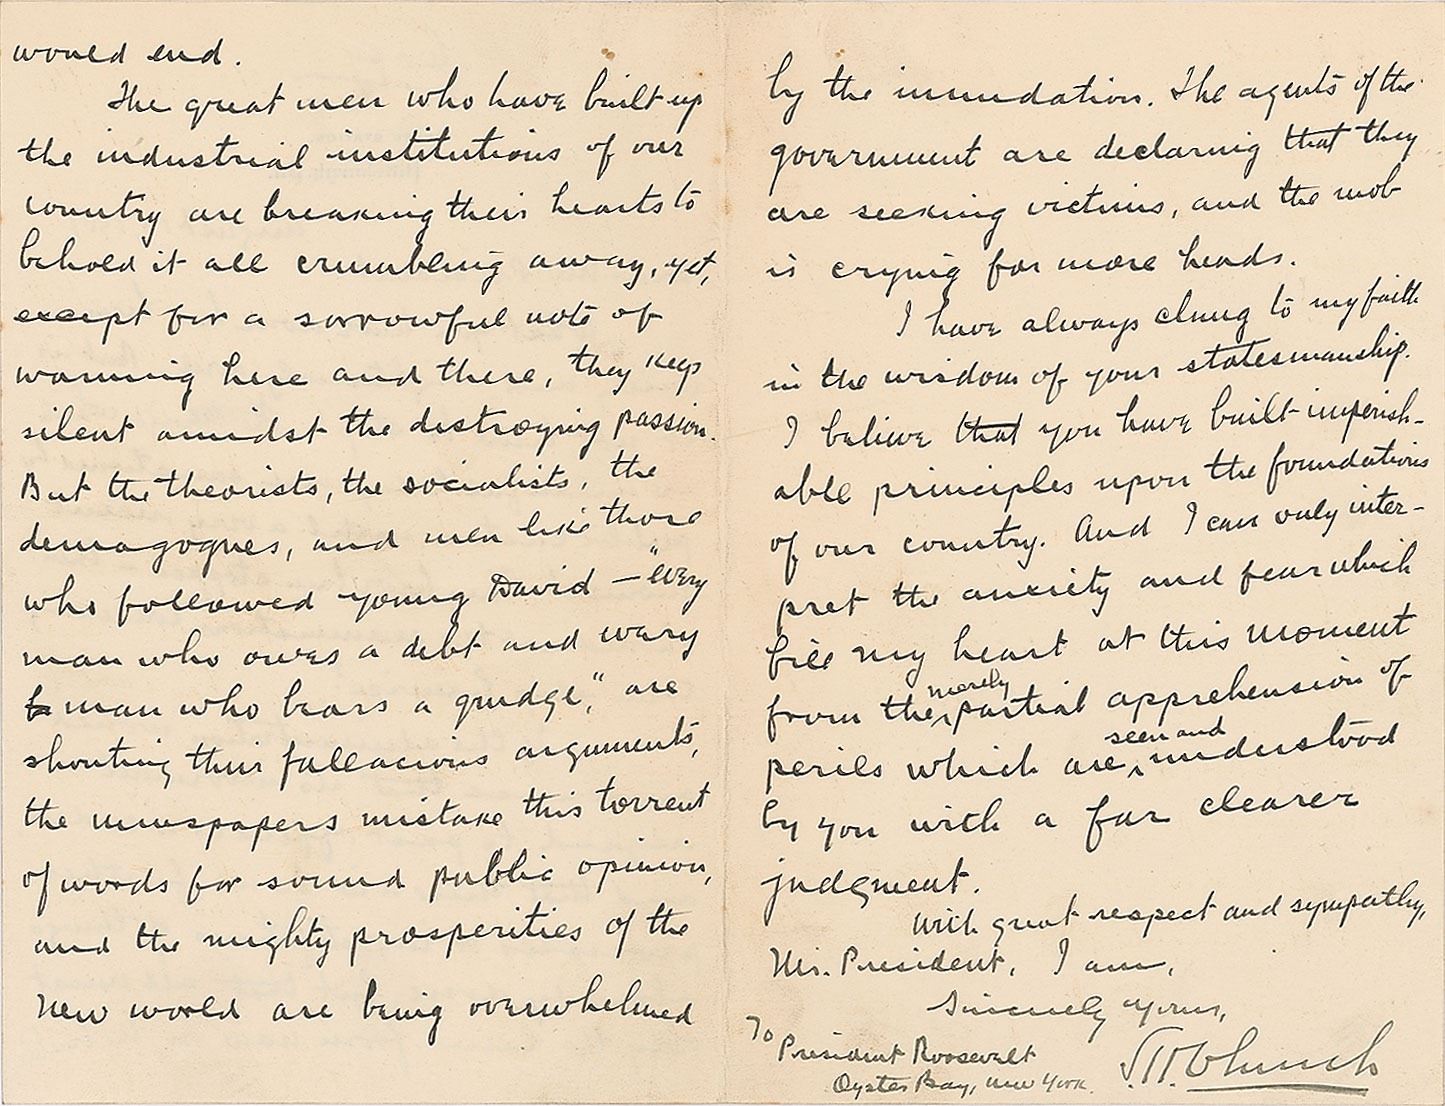 would end.
The great men who have built up
the industrial institutions of our
country are breaking their hearts to
behold it all crumbling away, yet,
except for a sorrowful note of
warning here and there, they keep
silent amidst the destroying passion.
But the theorists, the socialists, the
demagogues, and men like those
who followed young David — "every
man who owes a debt and every
man who bears a grudge," are
shouting their fallacious arguments,
the newspapers mistake this torrent
of words for sound public opinion,
and the mighty prosperities of the
New world are being overwhelmed
by the inundation. The agents of the
government are declaring that they
are seeking victims, and the mob
is crying for more heads.
I have always clung to my faith
in the wisdom of your statesmanship.
I believe that you have built imperish-
able principles upon the foundations
of our country. And I can only inter-
pret the anxiety and fear which
fill my heart at this moment
from the merely partial apprehension of
perils which are seen and understood
by you with a far clearer
judgment.
With great respect and sympathy,
Mr. President, I am,
Sincerely Yours,
To
President Roosevelt
Oyster Bay, New York.
Church